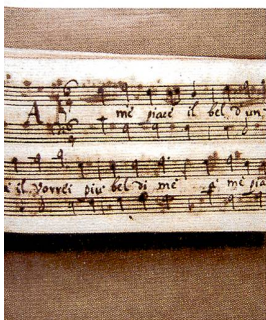 A me' piace il bel d'un
il vorrei piu' bel di me' a' me' pia